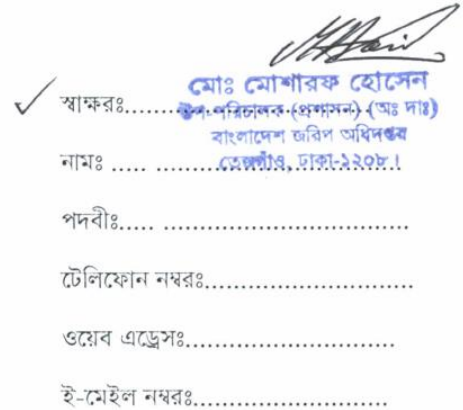 মোঃ মোশারফ হোসেন
স্বাক্ষরঃ.................. উপ-পরিচালক (প্রশাসন) (অঃ দাঃ)
বাংলাদেশ জরিপ অধিদপ্তর
নামঃ ..... ........ তেজগাঁও, ঢাকা-১২০৮।
পদবীঃ..... ....................................
টেলিফোন নম্বরঃ...............................
ওয়েব এড্রেসঃ...............................
ই-মেইল নম্বরঃ.............................